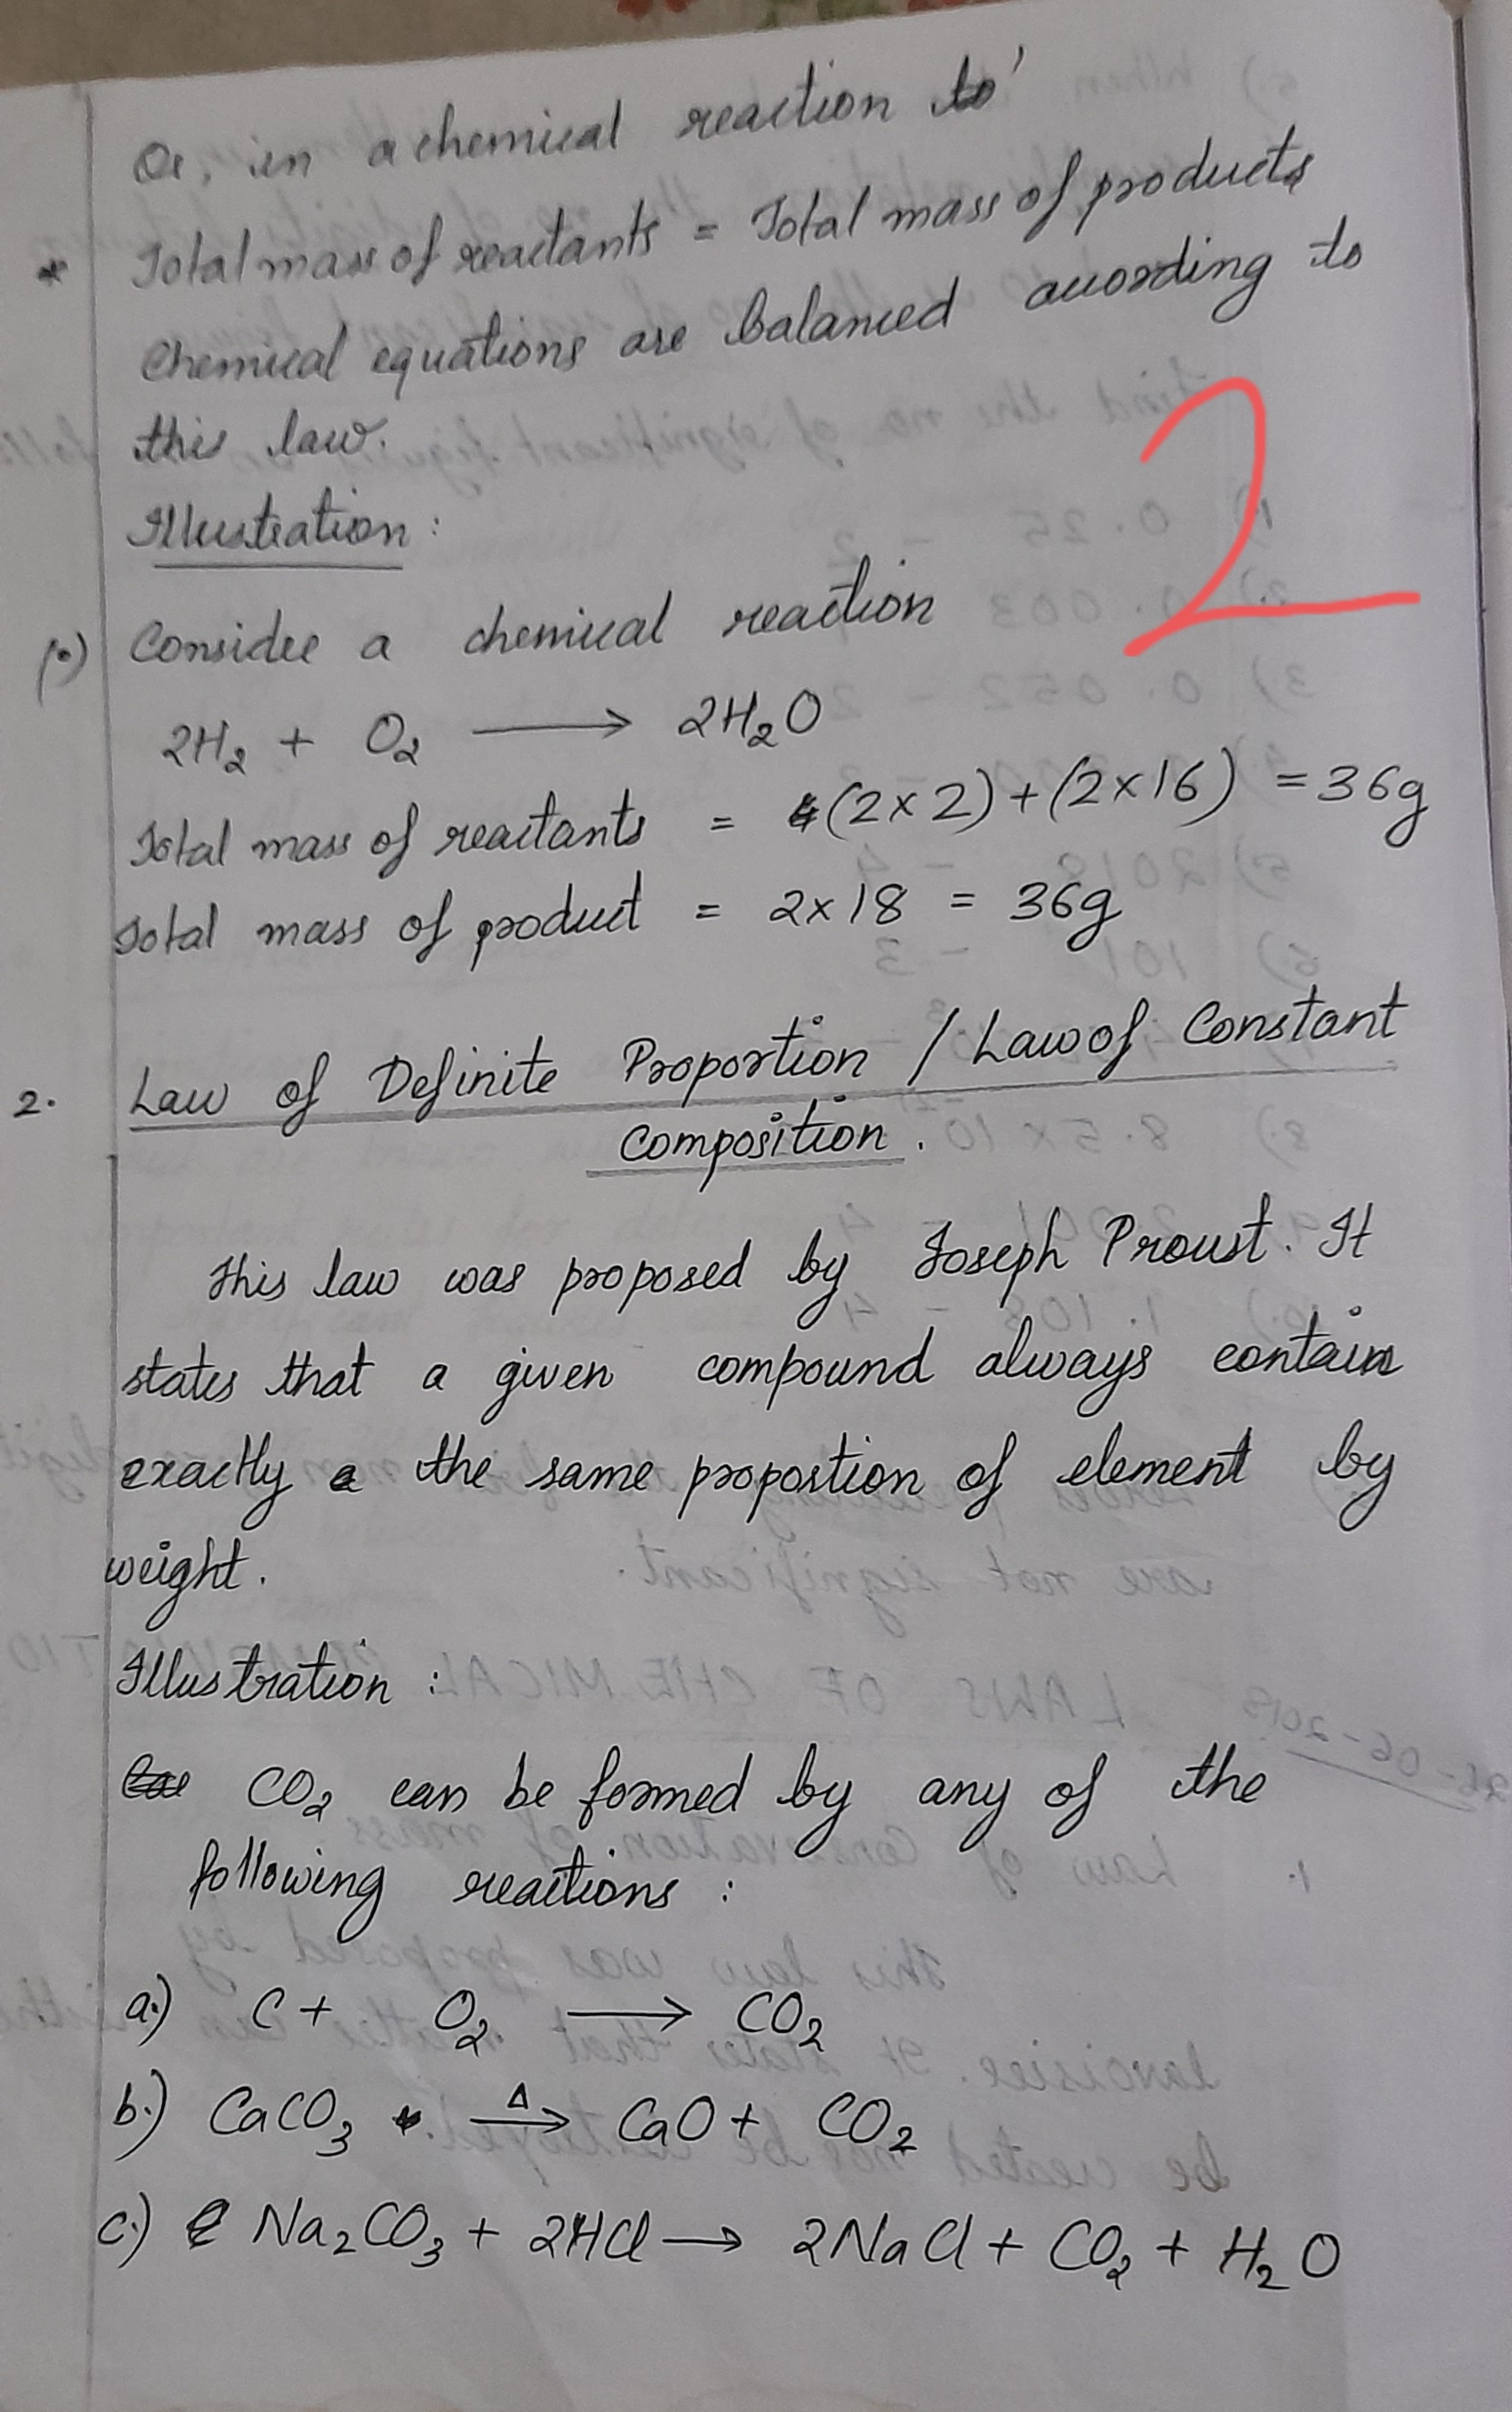 Or, in a chemical reaction
* Total mass of reactants = Total mass of products
Chemical equations are balanced according to
this law.
Illustration :
(•) Consider a chemical reaction
2
2H₂ + O₂ ⟶ 2H₂O
Total mass of reactants = (2×2)+(2×16) = 36g
Total mass of product = 2×18 = 36g
2. Law of Definite Proportion / Law of Constant
Composition.
This law was proposed by Joseph Proust. It
states that a given compound always contain
exactly the same proportion of element by
weight.
Illustration :
CO₂ can be formed by any of the
following reactions :
a.) C + O₂ ⟶ CO₂
b.) CaCO₃ Δ⟶ CaO + CO₂
c.) Na₂CO₃ + 2HCl ⟶ 2NaCl + CO₂ + H₂O